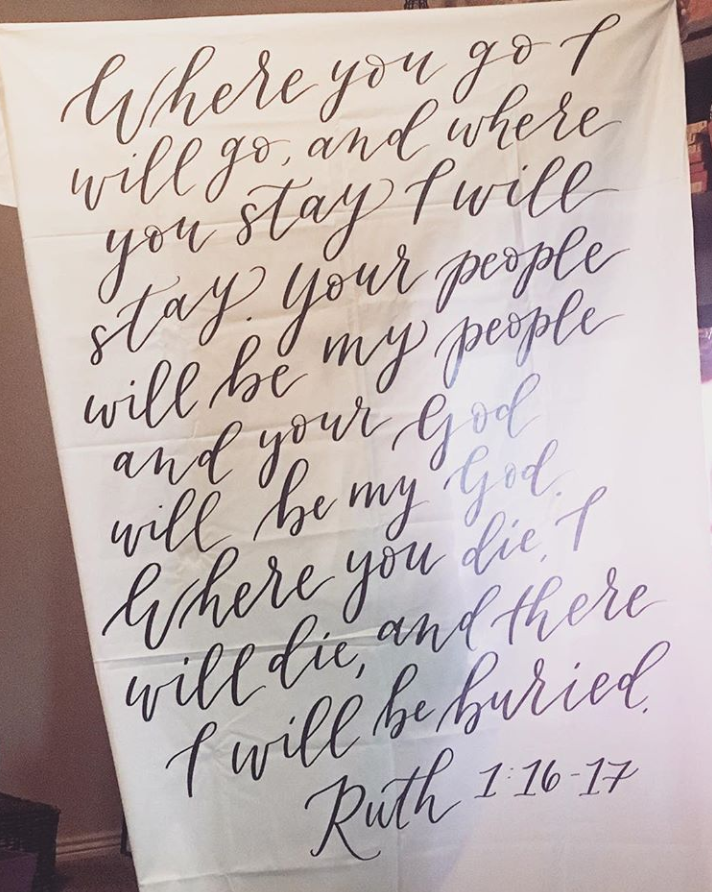 Where you go I
will go, and where
you stay I will
stay. Your people
will be my people
and your God
will be my God.
Where you die, I
will die, and there
I will be buried.
Ruth 1:16-17